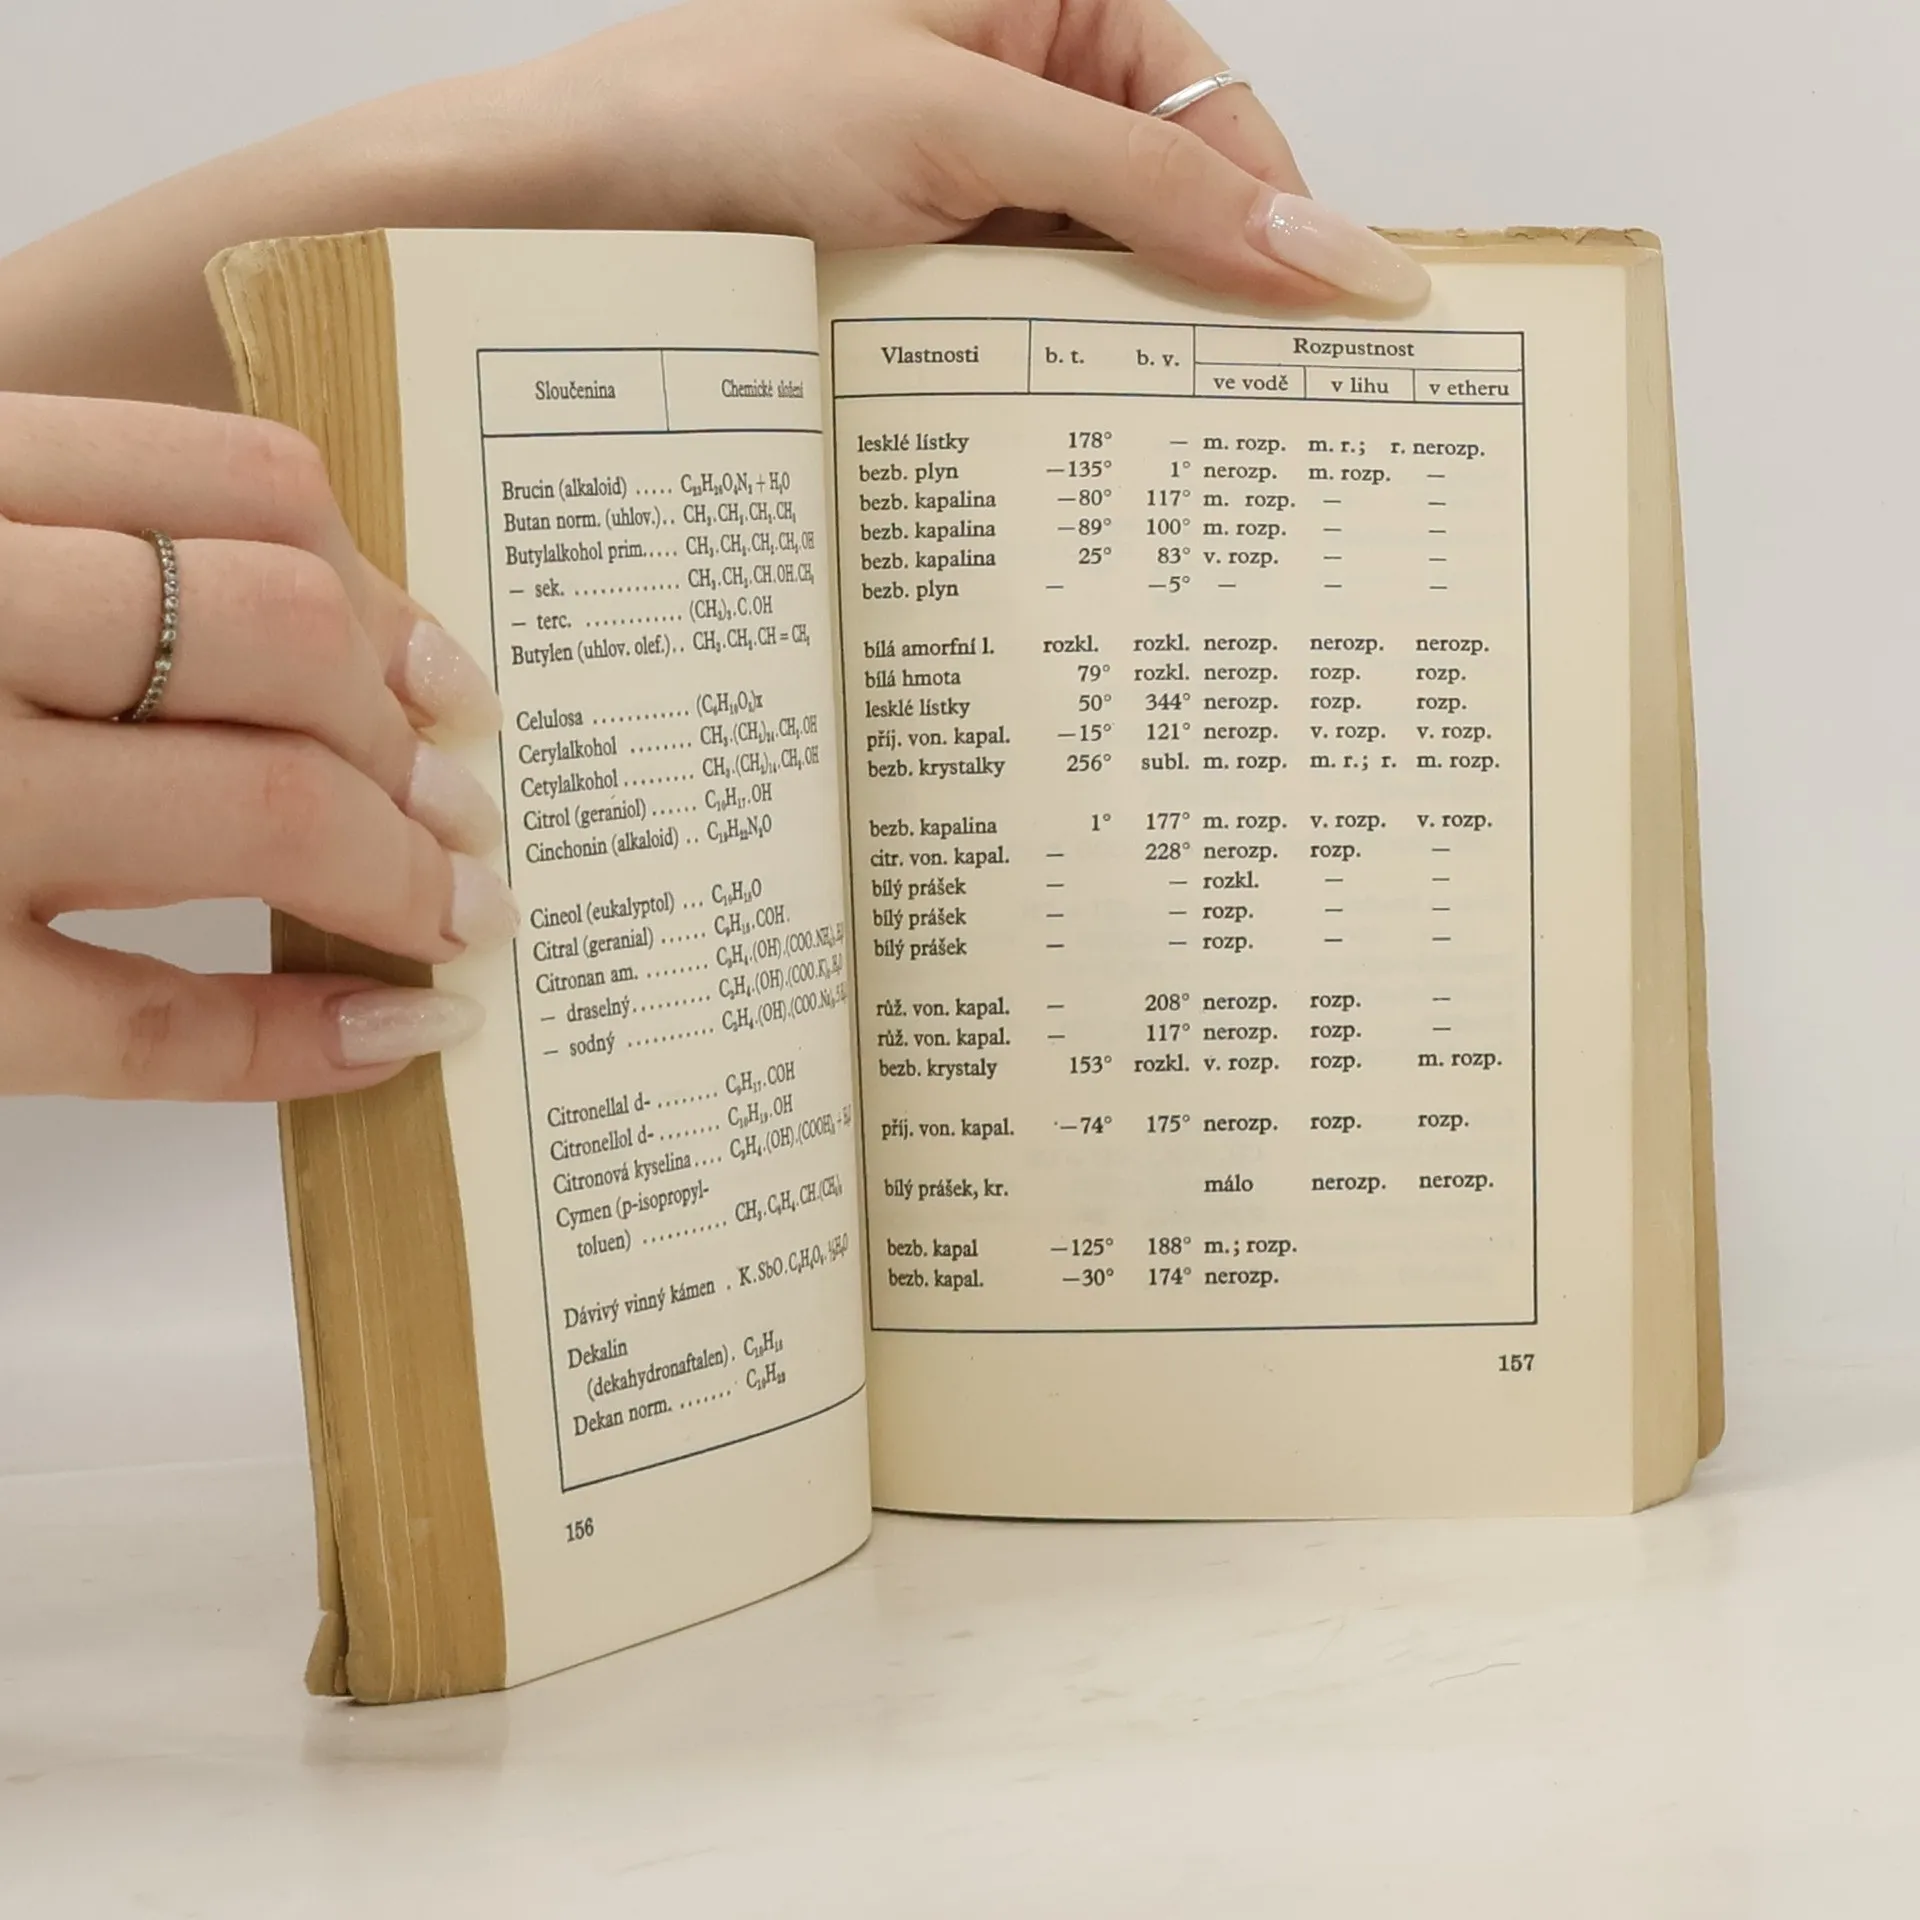 Sloučenina Chemické složení
Brucin (alkaloid) ..... C₂₃H₂₆O₄N₂ + H₂O
Butan norm. (uhlov.).. CH₃.CH₂.CH₂.CH₃
Butylalkohol prim..... CH₃.CH₂.CH₂.CH₂.OH
— sek. ............. CH₃.CH₂.CH.OH.CH₃
— terc. ............ (CH₃)₃.C.OH
Butylen (uhlov. olef.).. CH₃.CH₂.CH = CH₂
Celulosa ............ (C₆H₁₀O₅)x
Cerylalkohol ........ CH₃.(CH₂)₂₄.CH₂.OH
Cetylalkohol ......... CH₃.(CH₂)₁₄.CH₂.OH
Citrol (geraniol) ...... C₁₀H₁₇.OH
Cinchonin (alkaloid) .. C₁₉H₂₂N₂O
Cineol (eukalyptol) ... C₁₀H₁₈O
Citral (geranial) ...... C₉H₁₅.COH.
Citronan am. ........ C₃H₄.(OH).(COO.NH₄)₃
— draselný.......... C₃H₄.(OH).(COO.K)₃.H₂O
— sodný ........... C₃H₄.(OH).(COO.Na)₃
Citronellal d- ........ C₉H₁₇.COH
Citronellol d- ........ C₁₀H₁₉.OH
Citronová kyselina.... C₃H₄.(OH).(COOH)₃ + H₂O
Cymen (p-isopropyl-
toluen) ........... CH₃.C₆H₄.CH.(CH₃)₂
Dávivý vinný kámen . K.SbO.C₄H₄O₆.½H₂O
Dekalin
(dekahydronaftalen). C₁₀H₁₈
Dekan norm. ....... C₁₀H₂₂
156
Vlastnosti b. t. b. v. Rozpustnost
ve vodě v lihu v etheru
lesklé lístky 178° — m. rozp. m. r.; r. nerozp.
bezb. plyn —135° 1° nerozp. m. rozp. —
bezb. kapalina —80° 117° m. rozp. — —
bezb. kapalina —89° 100° m. rozp. — —
bezb. kapalina 25° 83° v. rozp. — —
bezb. plyn — —5° — — —
bílá amorfní l. rozkl. rozkl. nerozp. nerozp. nerozp.
bílá hmota 79° rozkl. nerozp. rozp. rozp.
lesklé lístky 50° 344° nerozp. rozp. rozp.
příj. von. kapal. —15° 121° nerozp. v. rozp. v. rozp.
bezb. krystalky 256° subl. m. rozp. m. r.; r. m. rozp.
bezb. kapalina 1° 177° m. rozp. v. rozp. v. rozp.
citr. von. kapal. — 228° nerozp. rozp. —
bílý prášek — — rozkl. — —
bílý prášek — — rozp. — —
bílý prášek — — rozp. — —
růž. von. kapal. — 208° nerozp. rozp. —
růž. von. kapal. — 117° nerozp. rozp. —
bezb. krystaly 153° rozkl. v. rozp. rozp. m. rozp.
příj. von. kapal. —74° 175° nerozp. rozp. rozp.
bílý prášek, kr. málo nerozp. nerozp.
bezb. kapal —125° 188° m.; rozp.
bezb. kapal. —30° 174° nerozp.
157